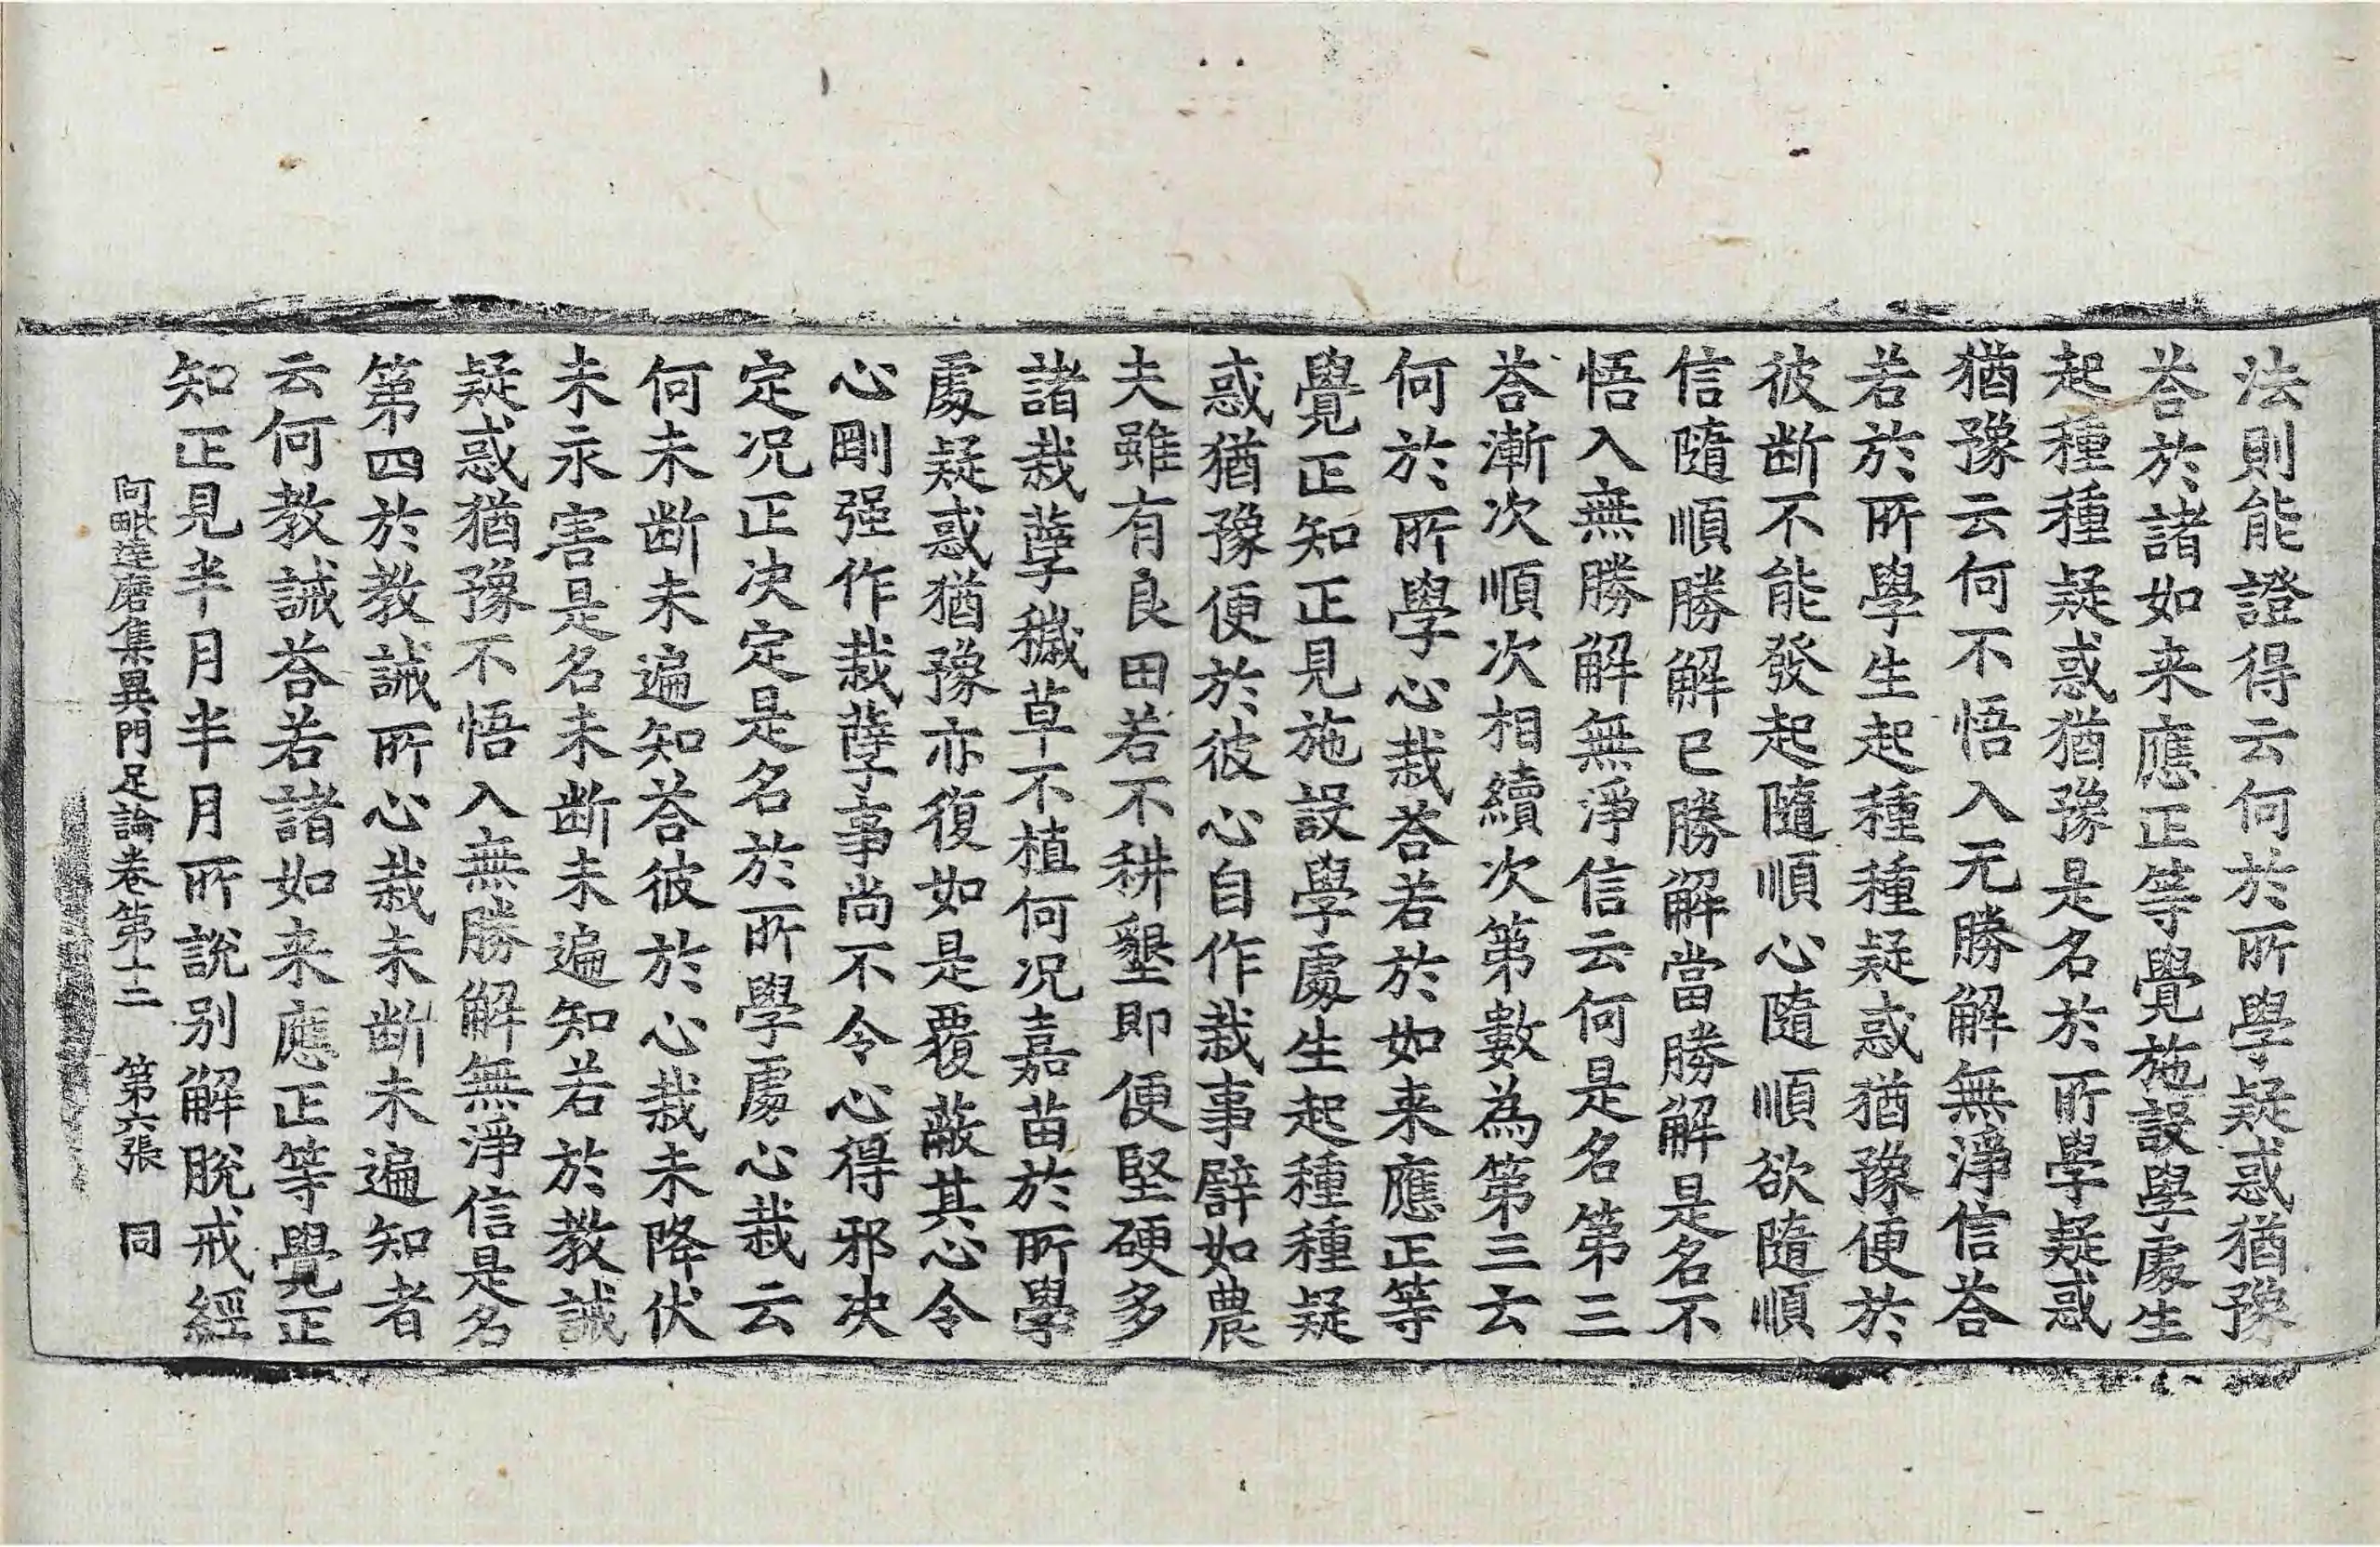 法則能證得云何於所學疑惑猶豫
荅於諸如来應正等覺施設學處生
起種種疑惑猶豫是名於所學疑惑
猶豫云何不悟入无勝解無淨信荅
若於所學生起種種疑惑猶豫便於
彼断不能發起隨順心隨順欲隨順
信隨順勝解已勝解當勝解是名不
悟入無勝解無淨信云何是名第三
荅漸次順次相續次第數為第三云
何於所學心栽荅若於如来應正等
覺正知正見施設學處生起種種疑
惑猶豫便於彼心自作栽事譬如農
夫雖有良田若不耕墾即便堅硬多
諸栽孽穢草不植何况嘉苗於所學
處疑惑猶豫亦復如是覆蔽其心令
心剛强作栽孽事尚不令心得邪决
定况正决定是名於所學處心栽云
何未断未遍知荅彼於心栽未降伏
未永害是名未断未遍知若於教誡
疑惑猶豫不悟入無勝解無淨信是名
第四於教誡所心栽未断未遍知者
云何教誡荅若諸如来應正等覺正
知正見半月半月所說别解脫戒經
阿毗達磨集異門足論卷第十二 第六張 同